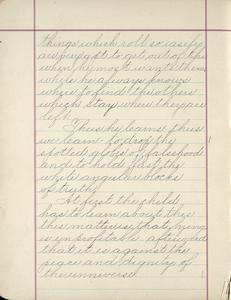 things which roll so easily
are very apt to get out of the
when he most wants them
while he always knows
where to find the others
which stay where they are
left.
Thus he learns thus
we learn to drop the
spotted globes of falsehood
and to hold fast the
white angular blocks
of truth.
At first the child
has to learn about this
this matter is that lying
is unprofitable, afterward
that it is against the
peace and dignity of
the universe.